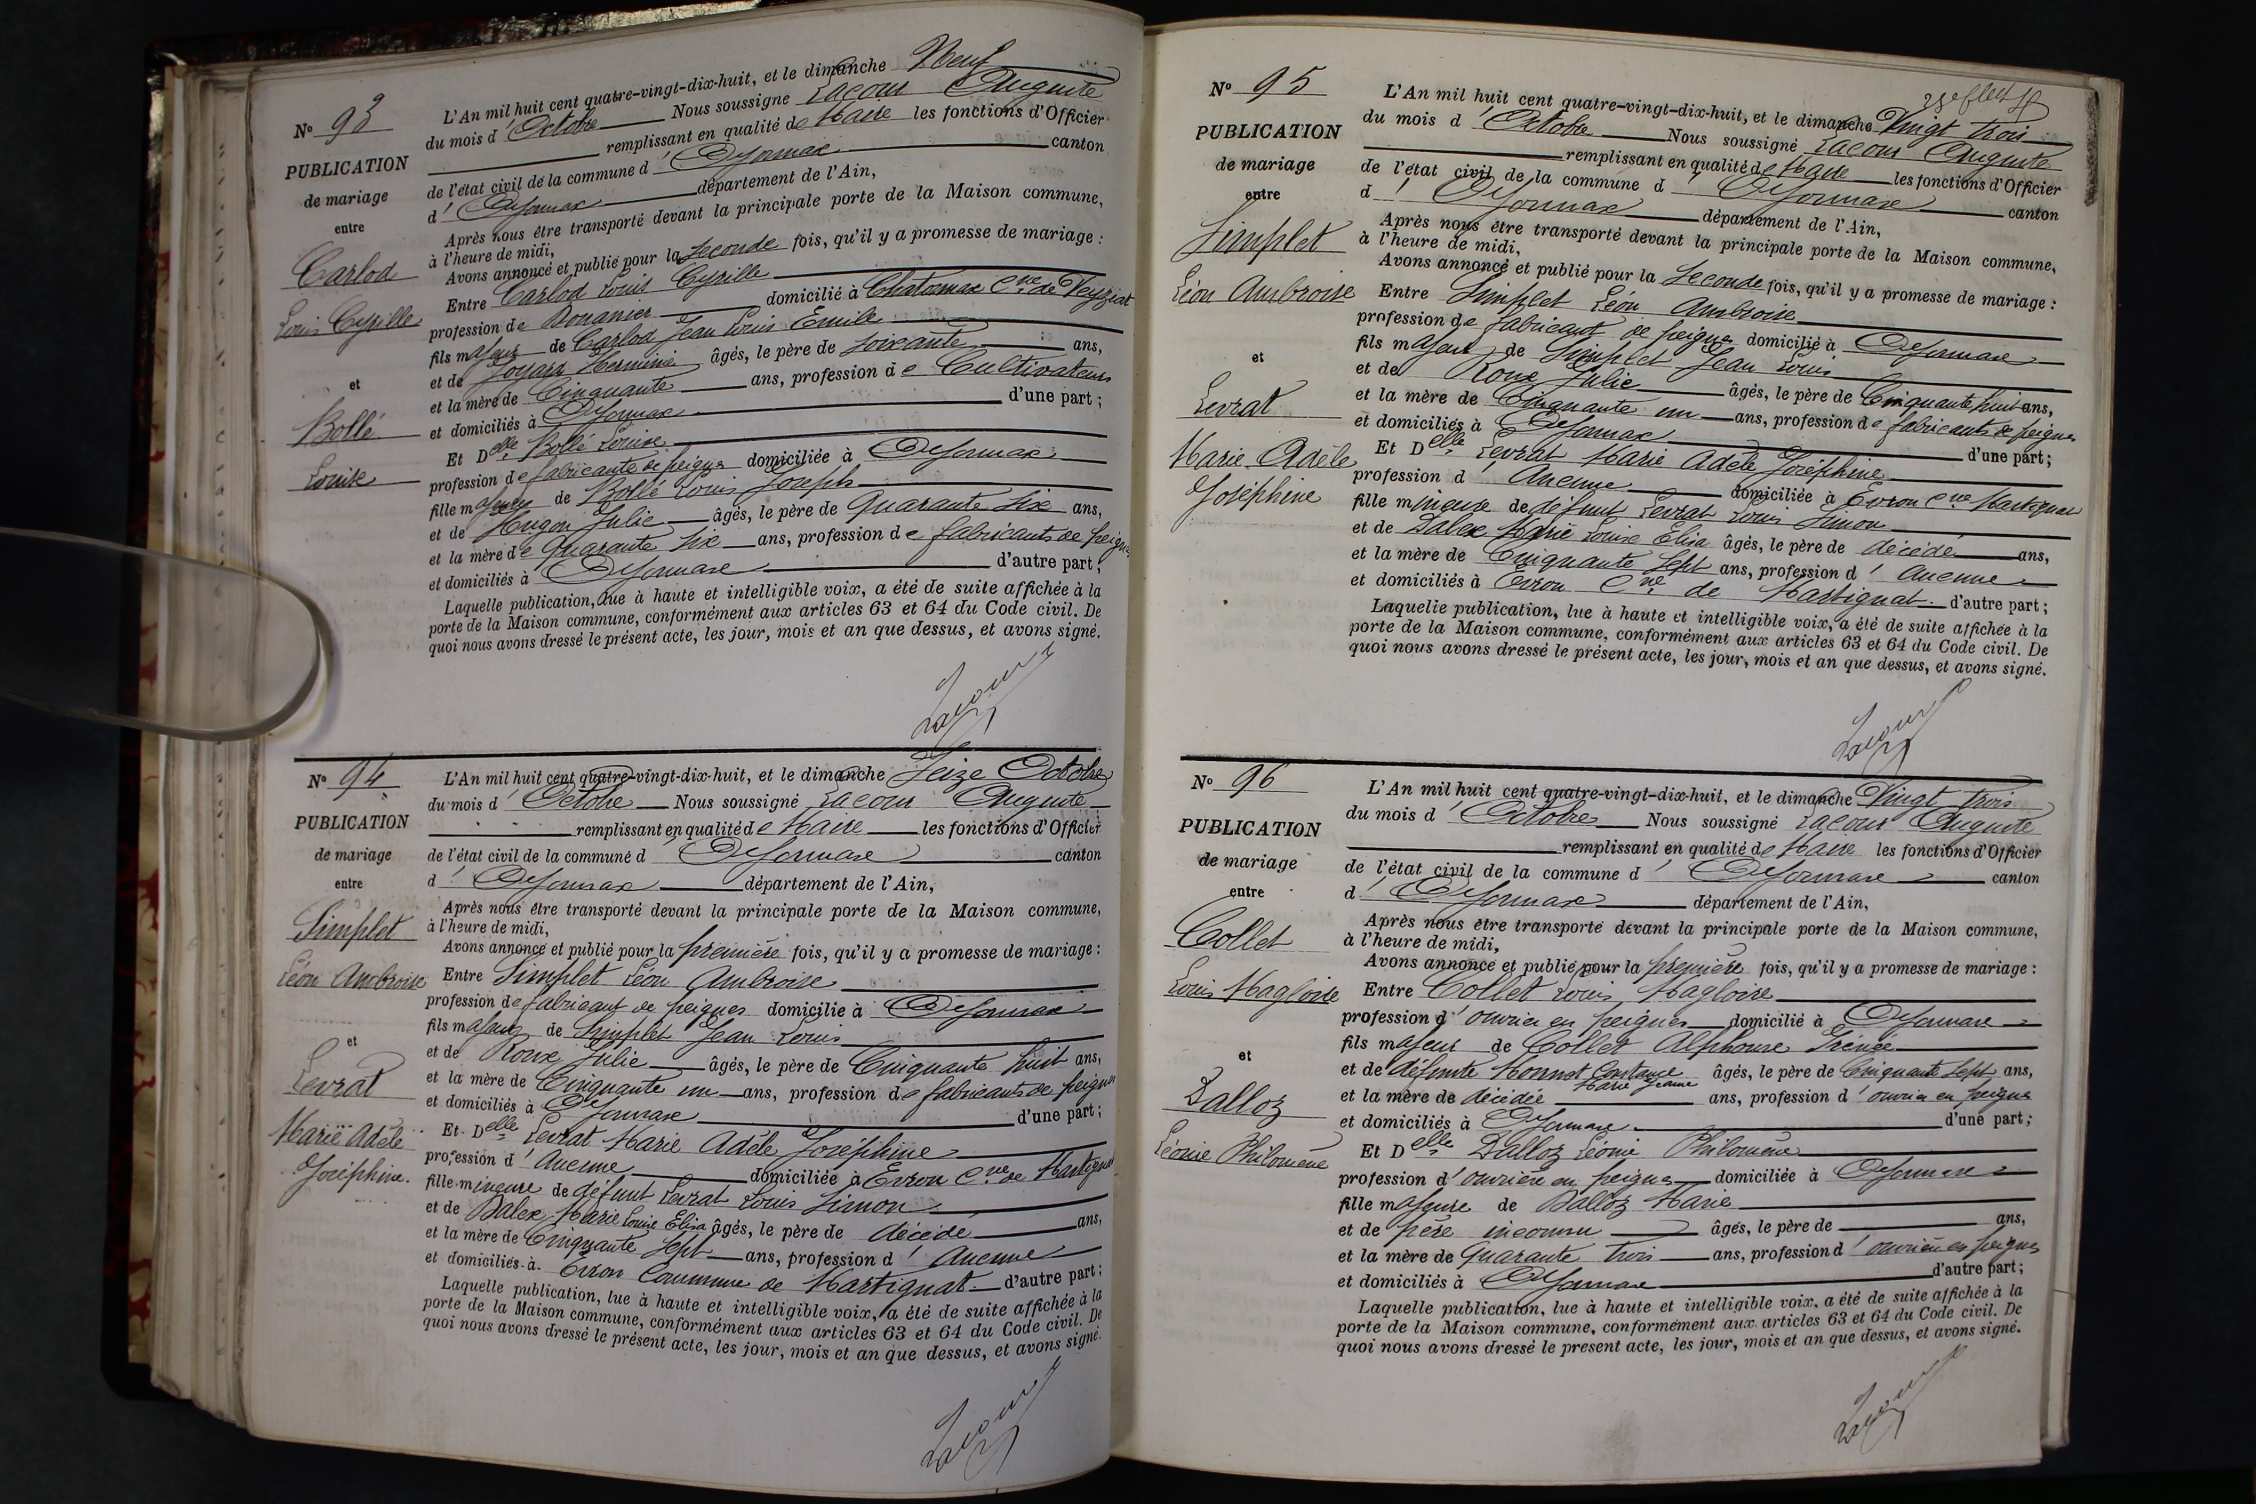 N° 93
PUBLICATION
de mariage
entre
Carlod
Louis Cyrille
et
Bollé
Louise
L'An mil huit cent quatre-vingt-dix-huit, et le dimanche Neuf
du mois d'Octobre Nous soussigné Lacour Auguste
remplissant en qualité de Maire les fonctions d'Officier
de l'état civil de la commune d'Oyonnax canton
d'Oyonnax département de l'Ain,
Après nous être transporté devant la principale porte de la Maison commune,
à l'heure de midi,
Avons annoncé et publié pour la seconde fois, qu'il y a promesse de mariage :
Entre Carlod Louis Cyrille
profession de Douanier domicilié à Chatonnax Cne de Veyziat
fils majeur de Carlod Jean Louis Emile
et de Joyard Herminie âgés, le père de soixante ans,
et la mère de Cinquante ans, profession de Cultivateurs
et domiciliés à Oyonnax d'une part ;
Et Delle Bollé Louise
profession de fabricante de peignes domiciliée à Oyonnax
fille majeure de Bollé Louis Joseph
et de Hugon Julie âgés, le père de Quarante six ans,
et la mère de quarante six ans, profession de fabricants de peignes
et domiciliés à Oyonnax d'autre part ;
Laquelle publication, lue à haute et intelligible voix, a été de suite affichée à la
porte de la Maison commune, conformément aux articles 63 et 64 du Code civil. De
quoi nous avons dressé le présent acte, les jour, mois et an que dessus, et avons signé.
Lacour
N° 94
PUBLICATION
de mariage
entre
Simplet
Léon Ambroise
et
Levrat
Marie Adèle
Joséphine.
L'An mil huit cent quatre-vingt-dix-huit, et le dimanche Seize Octobre
du mois d'Octobre Nous soussigné Lacour Auguste
remplissant en qualité de Maire les fonctions d'Officier
de l'état civil de la commune d'Oyonnax canton
d'Oyonnax département de l'Ain,
Après nous être transporté devant la principale porte de la Maison commune,
à l'heure de midi,
Avons annoncé et publié pour la première fois, qu'il y a promesse de mariage :
Entre Simplet Léon Ambroise
profession de fabricant de peignes domicilié à Oyonnax
fils majeur de Simplet Jean Louis
et de Roux Julie âgés, le père de Cinquante huit ans,
et la mère de Cinquante un ans, profession de fabricants de peignes
et domiciliés à Oyonnax d'une part ;
Et Delle Levrat Marie Adèle Joséphine
profession d'Aucune domiciliée à Evron Cne de Martignat
fille mineure de défunt Levrat Louis Simon
et de Dalex Marie Louise Elisa âgés, le père de décédé ans,
et la mère de Cinquante sept ans, profession d'Aucune
et domiciliés à Evron Commune de Martignat d'autre part ;
Laquelle publication, lue à haute et intelligible voix, a été de suite affichée à la
porte de la Maison commune, conformément aux articles 63 et 64 du Code civil. De
quoi nous avons dressé le présent acte, les jour, mois et an que dessus, et avons signé.
Lacour
N° 95
PUBLICATION
de mariage
entre
Simplet
Léon Ambroise
et
Levrat
Marie Adèle
Joséphine
L'An mil huit cent quatre-vingt-dix-huit, et le dimanche Vingt trois
du mois d'Octobre Nous soussigné Lacour Auguste
remplissant en qualité de Maire les fonctions d'Officier
de l'état civil de la commune d'Oyonnax canton
d'Oyonnax département de l'Ain,
Après nous être transporté devant la principale porte de la Maison commune,
à l'heure de midi,
Avons annoncé et publié pour la Seconde fois, qu'il y a promesse de mariage :
Entre Simplet Léon Ambroise
profession de fabricant de peignes domicilié à Oyonnax
fils majeur de Simplet Jean Louis
et de Roux Julie âgés, le père de Cinquante huit ans,
et la mère de Cinquante un ans, profession de fabricants de peignes
et domiciliés à Oyonnax d'une part ;
Et Delle Levrat Marie Adèle Joséphine
profession d'Aucune domiciliée à Evron Cne Martignat
fille mineure de défunt Levrat Louis Simon
et de Dalex Marie Louise Elisa âgés, le père de décédé ans,
et la mère de Cinquante sept ans, profession d'Aucune
et domiciliés à Evron Cne de Martignat d'autre part ;
Laquelle publication, lue à haute et intelligible voix, a été de suite affichée à la
porte de la Maison commune, conformément aux articles 63 et 64 du Code civil. De
quoi nous avons dressé le présent acte, les jour, mois et an que dessus, et avons signé.
Lacour
N° 96
PUBLICATION
de mariage
entre
Collet
Louis Magloire
et
Dalloz
Léonie Philomène
L'An mil huit cent quatre-vingt-dix-huit, et le dimanche Vingt trois
du mois d'Octobre Nous soussigné Lacour Auguste
remplissant en qualité de Maire les fonctions d'Officier
de l'état civil de la commune d'Oyonnax canton
d'Oyonnax département de l'Ain,
Après nous être transporté devant la principale porte de la Maison commune,
à l'heure de midi,
Avons annoncé et publié pour la première fois, qu'il y a promesse de mariage :
Entre Collet Louis Magloire
profession d'ouvrier en peignes domicilié à Oyonnax
fils majeur de Collet Alphonse Irénée
et de défunte Monnot Constance Marie Jeanne âgés, le père de Cinquante sept ans,
et la mère de décédée ans, profession d'ouvrier en peignes
et domiciliés à Oyonnax d'une part ;
Et Delle Dalloz Léonie Philomène
profession d'ouvrière en peignes domiciliée à Oyonnax
fille majeure de Dalloz Marie
et de père inconnu âgés, le père de ans,
et la mère de Quarante trois ans, profession d'ouvrière en peignes
et domiciliés à Oyonnax d'autre part ;
Laquelle publication, lue à haute et intelligible voix, a été de suite affichée à la
porte de la Maison commune, conformément aux articles 63 et 64 du Code civil. De
quoi nous avons dressé le présent acte, les jour, mois et an que dessus, et avons signé.
Lacour